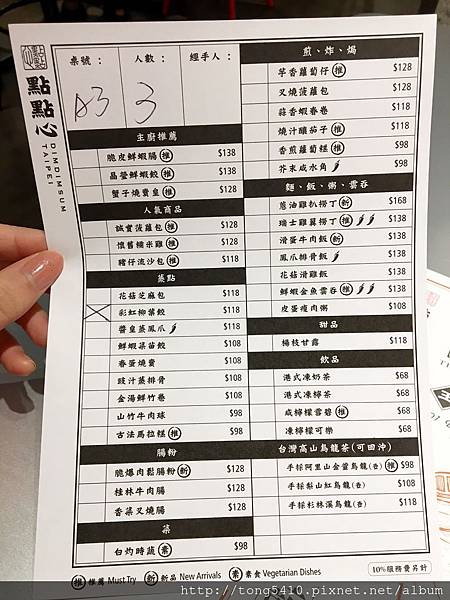 點點心
DIMDIMSUM
TAIPEI
桌號：
人數：
經手人：
A3
3
主廚推薦
脆皮鮮蝦腸 推 $138
晶瑩鮮蝦餃 推 $138
蟹子燒賣皇 推 $128
人氣商品
誠實菠蘿包 推 $128
懷舊糯米雞 推 $128
豬仔流沙包 推 $118
蒸點
花菇芝麻包 $118
彩虹柳葉餃 $118
醬皇蒸鳳爪 $118
鮮蝦菜苗餃 $108
春蛋燒賣 $108
豉汁蒸排骨 $108
金湯鮮竹卷 $108
山竹牛肉球 $98
古法馬拉糕 推 $98
腸粉
脆爆肉鬆腸粉 新 $128
桂林牛肉腸 $128
香菜叉燒腸 $128
菜
白灼時蔬 素 $98
煎、炸、焗
芋香蘿蔔仔 推 $128
叉燒菠蘿包 $128
蒜香蝦春卷 $118
燒汁釀茄子 推 $118
香煎蘿蔔糕 推 $98
芥末咸水角 $98
麵、飯、粥、雲吞
蔥油雞扒撈丁 新 $168
瑞士雞翼撈丁 推 $138
滑蛋牛肉飯 新 $138
鳳爪排骨飯 $138
花菇滑雞飯 $138
鮮蝦金魚雲吞 推 $138
皮蛋瘦肉粥 $108
甜品
楊枝甘露 $118
飲品
港式凍奶茶 $68
港式凍檸茶 $68
咸檸檬雪碧 推 $68
凍檸檬可樂 $68
台灣高山烏龍茶(可回沖)
手採阿里山金萱烏龍(壺) 推 $98
手採梨山紅烏龍(壺) $108
手採杉林溪烏龍(壺) $118
推 推薦 Must Try 新 新品 New Arrivals 素 素食 Vegetarian Dishes
10%服務費另計
http://tong5410.pixnet.net/album